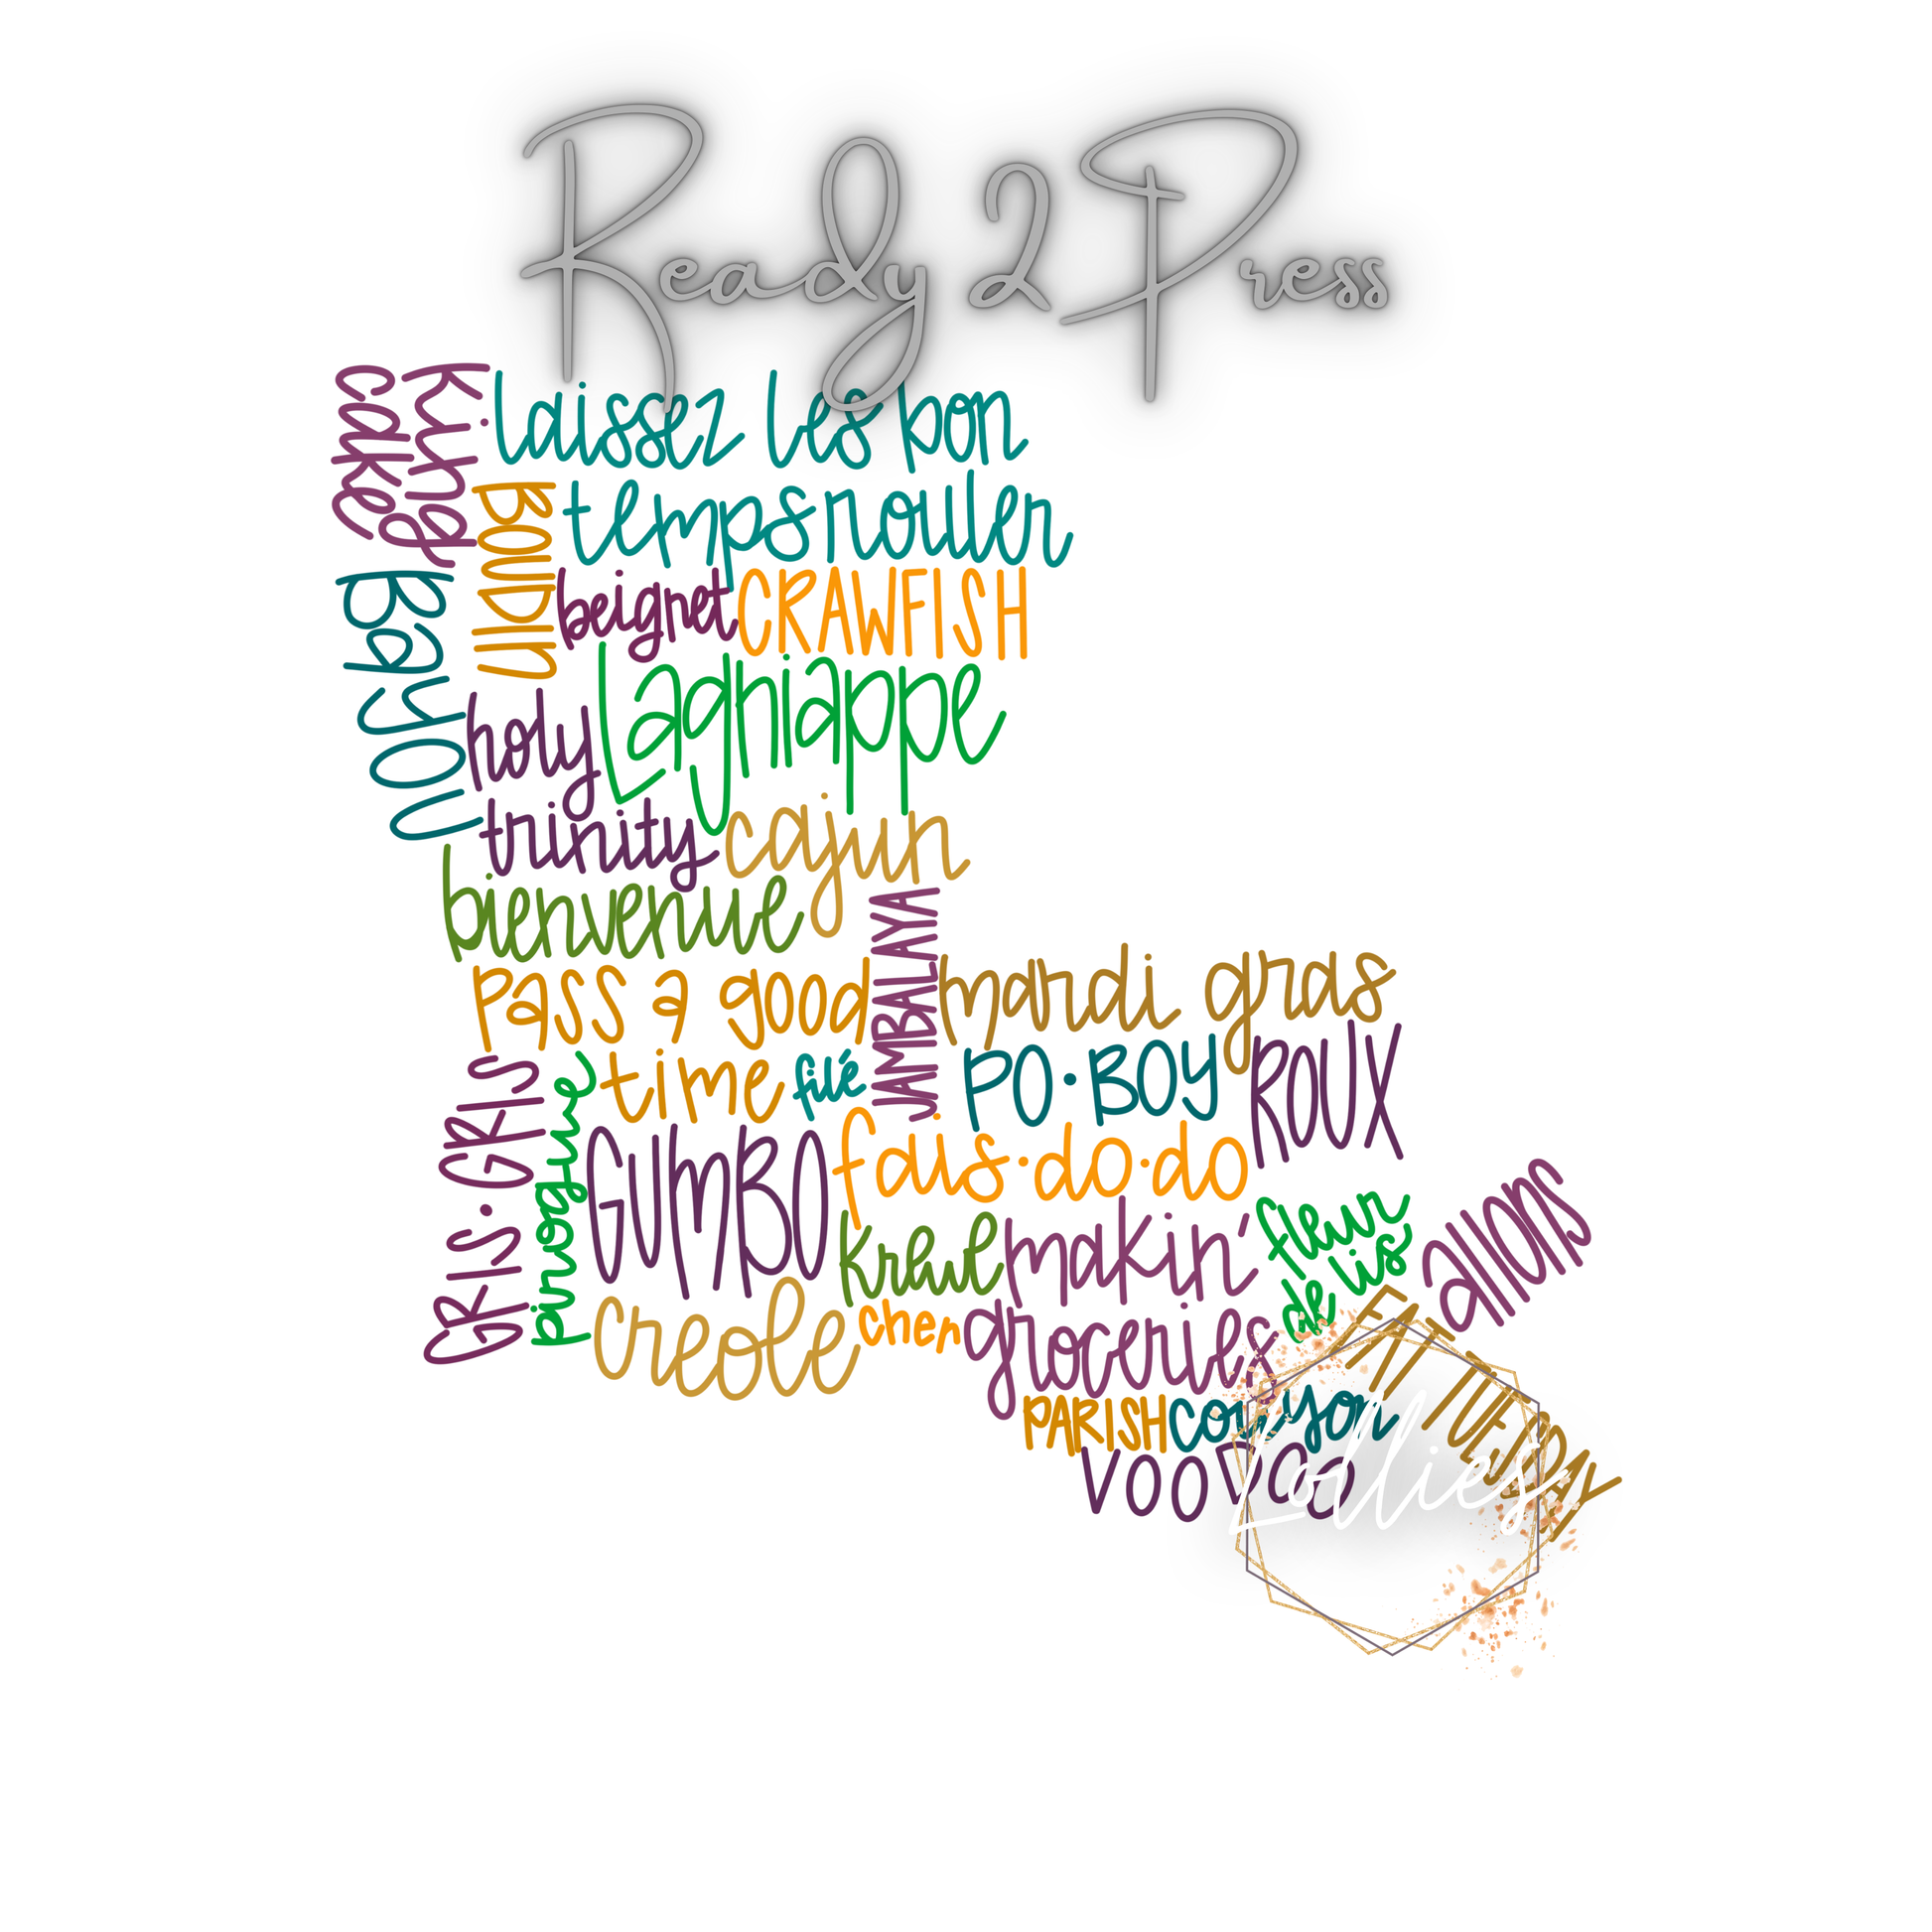 Ready 2 Press
King
cake
laissez les bon
temps rouler
BOUDIN
beignet
CRAWFISH
Bayou
holy
trinity
Lagniappe
cajun
bienvenue
JAMBALAYA
pass a good
time
mardi gras
filé
PO·BOY
ROUX
GRIS·GRIS
pirogue
GUMBO
fais·do·do
krewe
makin'
groceries
fleur
de lis
allons
creole
chen
FAT TUESDAY
PARISH
couyon
VOODOO
Lollies